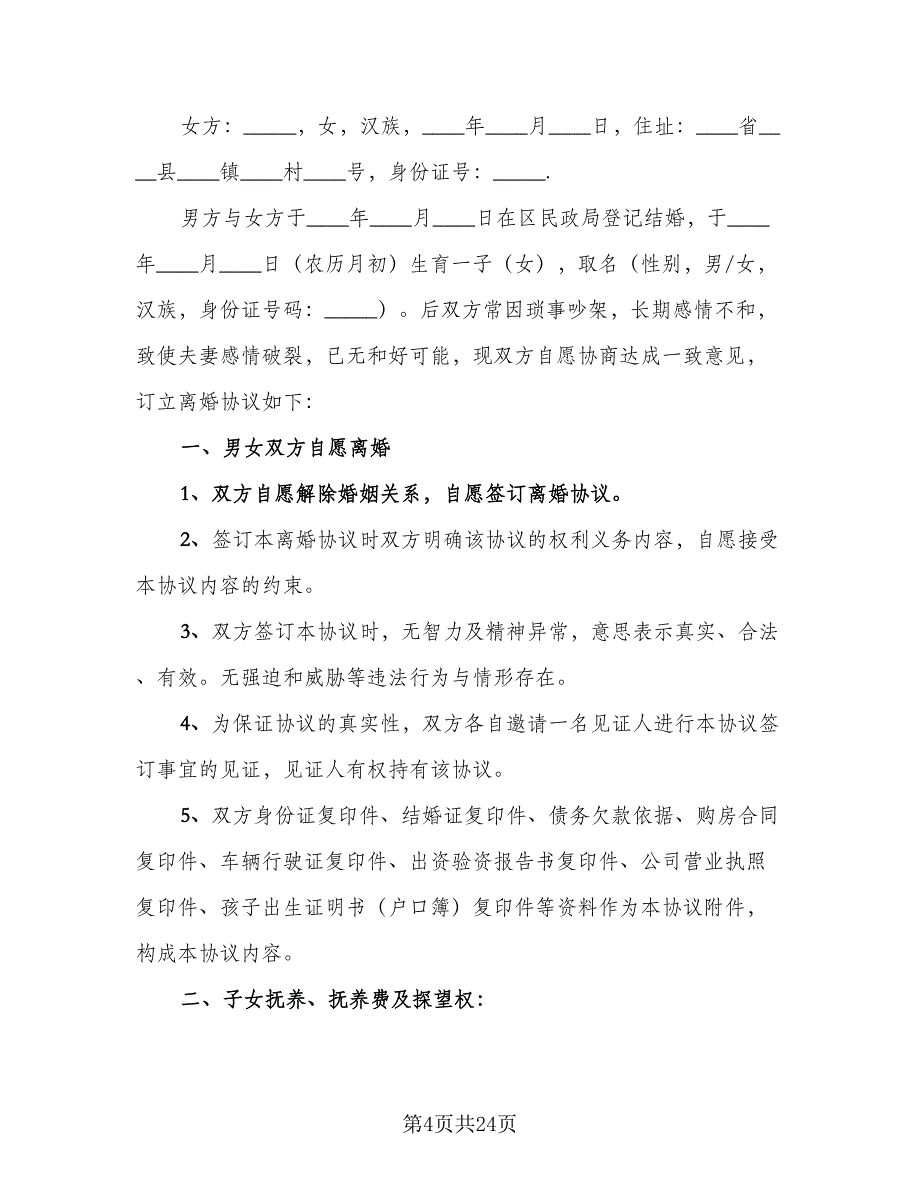 女方：_____，女，汉族，____年____月____日，住址：____省__
__县____镇____村____号，身份证号：_____.
男方与女方于____年____月____日在区民政局登记结婚，于____
年____月____日（农历月初）生育一子（女），取名（性别，男/女，
汉族，身份证号码：_____）。后双方常因琐事吵架，长期感情不和，
致使夫妻感情破裂，已无和好可能，现双方自愿协商达成一致意见，
订立离婚协议如下：
一、男女双方自愿离婚
1、双方自愿解除婚姻关系，自愿签订离婚协议。
2、签订本离婚协议时双方明确该协议的权利义务内容，自愿接受
本协议内容的约束。
3、双方签订本协议时，无智力及精神异常，意思表示真实、合法
、有效。无强迫和威胁等违法行为与情形存在。
4、为保证协议的真实性，双方各自邀请一名见证人进行本协议签
订事宜的见证，见证人有权持有该协议。
5、双方身份证复印件、结婚证复印件、债务欠款依据、购房合同
复印件、车辆行驶证复印件、出资验资报告书复印件、公司营业执照
复印件、孩子出生证明书（户口簿）复印件等资料作为本协议附件，
构成本协议内容。
二、子女抚养、抚养费及探望权：
第4页共24页